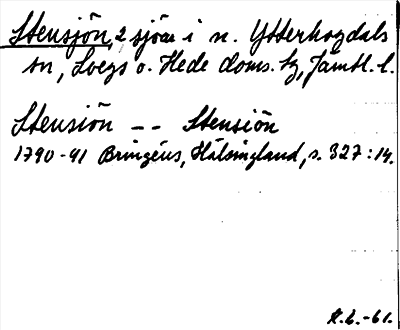 Stensjön, 2 sjöar i n. Ytterhogdals
sn, Svegs o. Hede doms. tg, Jämtl. l.
Stensiön -- Stensiön
1790-91 Bringéus, Hälsingland, s. 327:14.
R.L.-61.